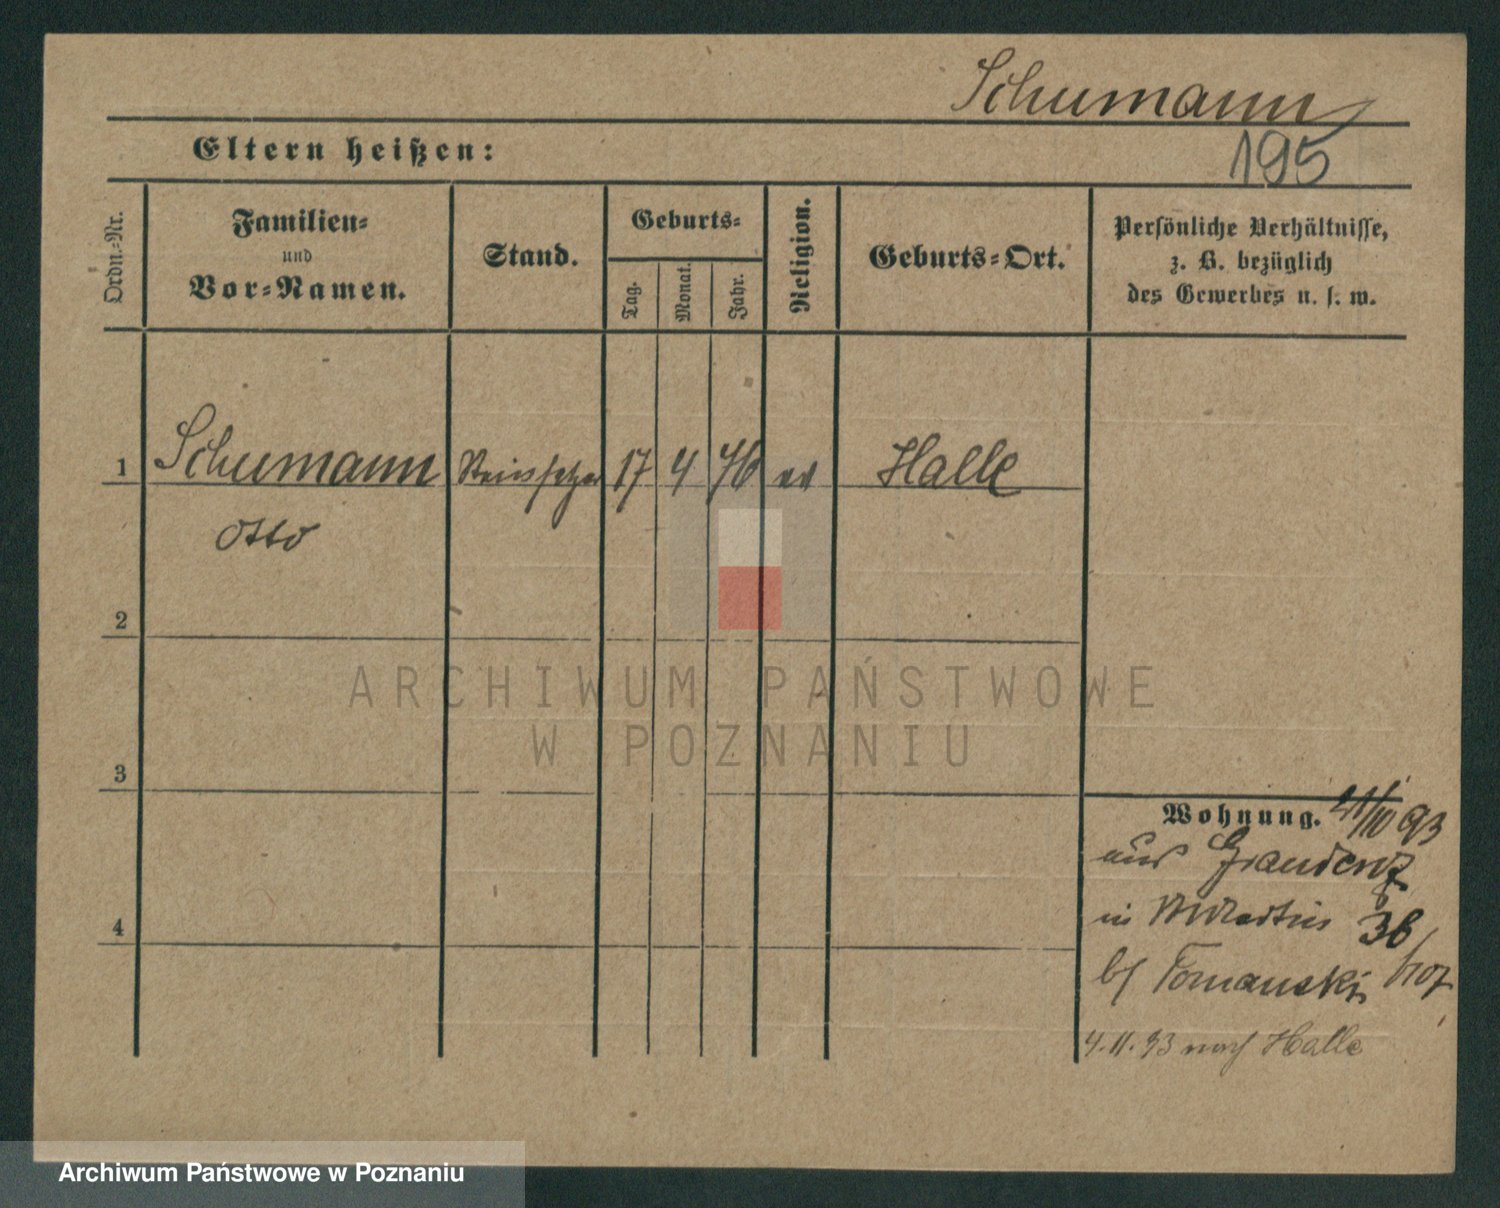 Schumann
195
Eltern heißen:
Ordn.-Nr.
Familien-
und
Vor-Namen.
Stand.
Geburts-
Tag.
Monat.
Jahr.
Religion.
Geburts-Ort.
Persönliche Verhältnisse,
z. B. bezüglich
des Gewerbes u. s. w.
1 Schumann Steinsetzer 17 4 76 ev Halle
Otto
2
3
4
Wohnung. 21/10 93
aus Graudenz
in St Martin 36
bf Tomanski
4.11.93 nach Halle
ARCHIWUM PAŃSTWOWE
W POZNANIU
Archiwum Państwowe w Poznaniu